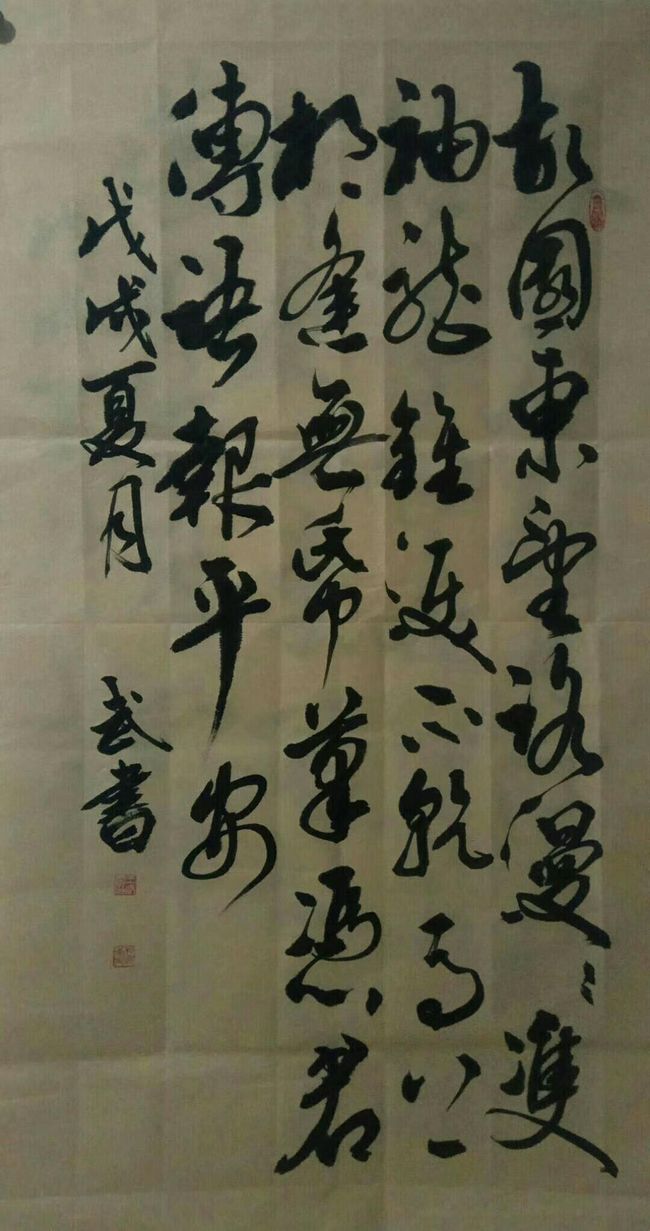 故園東望路漫〻雙
袖龍鍾淚不乾馬上
相逢無帋筆憑君
傳語報平安
戊戌夏月 武書